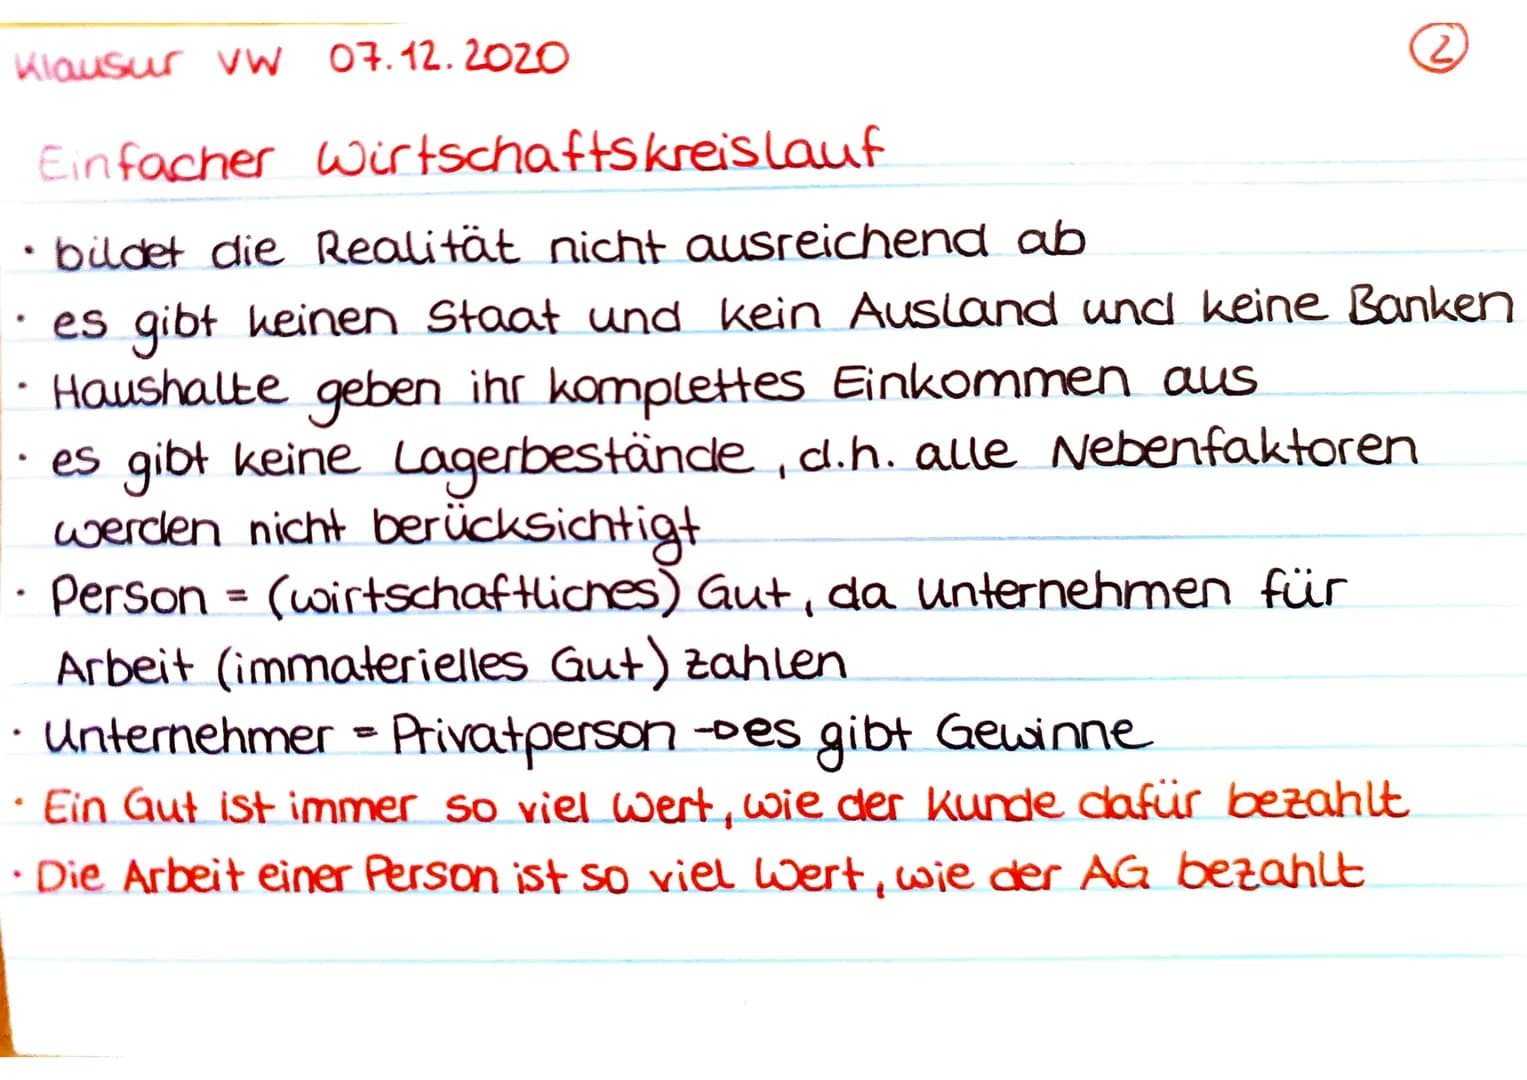 Klausur VW 07.12.2020 2
Einfacher Wirtschaftskreislauf
· bildet die Realität nicht ausreichend ab
· es gibt keinen Staat und kein Ausland und keine Banken
· Haushalte geben ihr komplettes Einkommen aus
· es gibt keine Lagerbestände, d.h. alle Nebenfaktoren
werden nicht berücksichtigt
· Person = (wirtschaftliches) Gut, da Unternehmen für
Arbeit (immaterielles Gut) zahlen
· Unternehmer = Privatperson → es gibt Gewinne
· Ein Gut ist immer so viel Wert, wie der Kunde dafür bezahlt
· Die Arbeit einer Person ist so viel Wert, wie der AG bezahlt